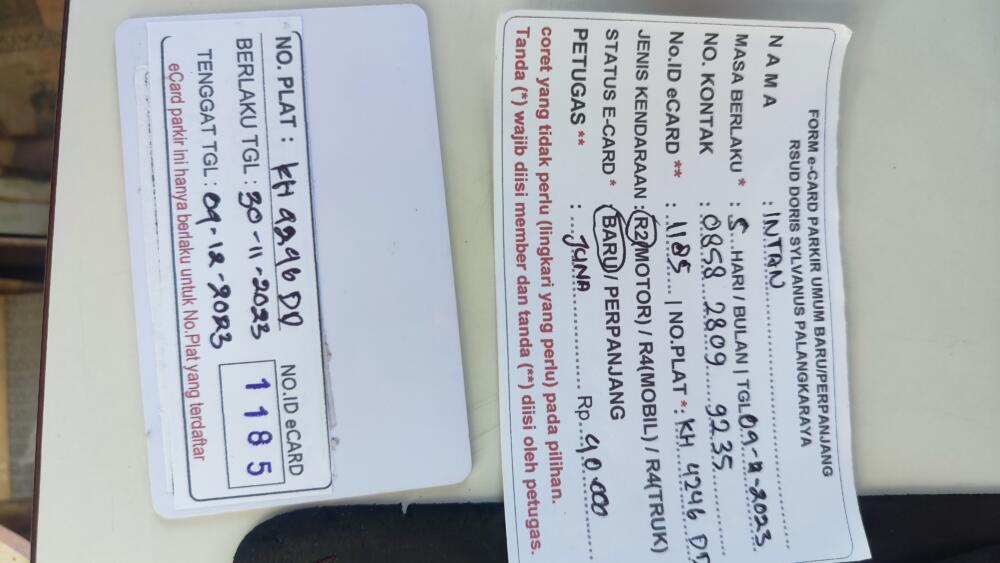 FORM e-CARD PARKIR UMUM BARU/PERPANJANG
RSUD DORIS SYLVANUS PALANGKARAYA
N A M A : INTAN
MASA BERLAKU * : 5 HARI / BULAN | TGL
NO. KONTAK : 0858 2809 9235
No.ID eCARD ** : 1185 | NO.PLAT * : KH 4246 DD
JENIS KENDARAAN : R2(MOTOR) / R4(MOBIL) / R4(TRUK)
STATUS E-CARD * : BARU / PERPANJANG
PETUGAS ** : JUNA Rp 40.000
coret yang tidak perlu (lingkari yang perlu) pada pilihan.
Tanda (*) wajib diisi member dan tanda (**) diisi oleh petugas.
NO. PLAT : KH 4246 DD
BERLAKU TGL : 30-11-2023
TENGGAT TGL : 09-12-2023
NO.ID eCARD
1185
eCard parkir ini hanya berlaku untuk No.Plat yang terdaftar